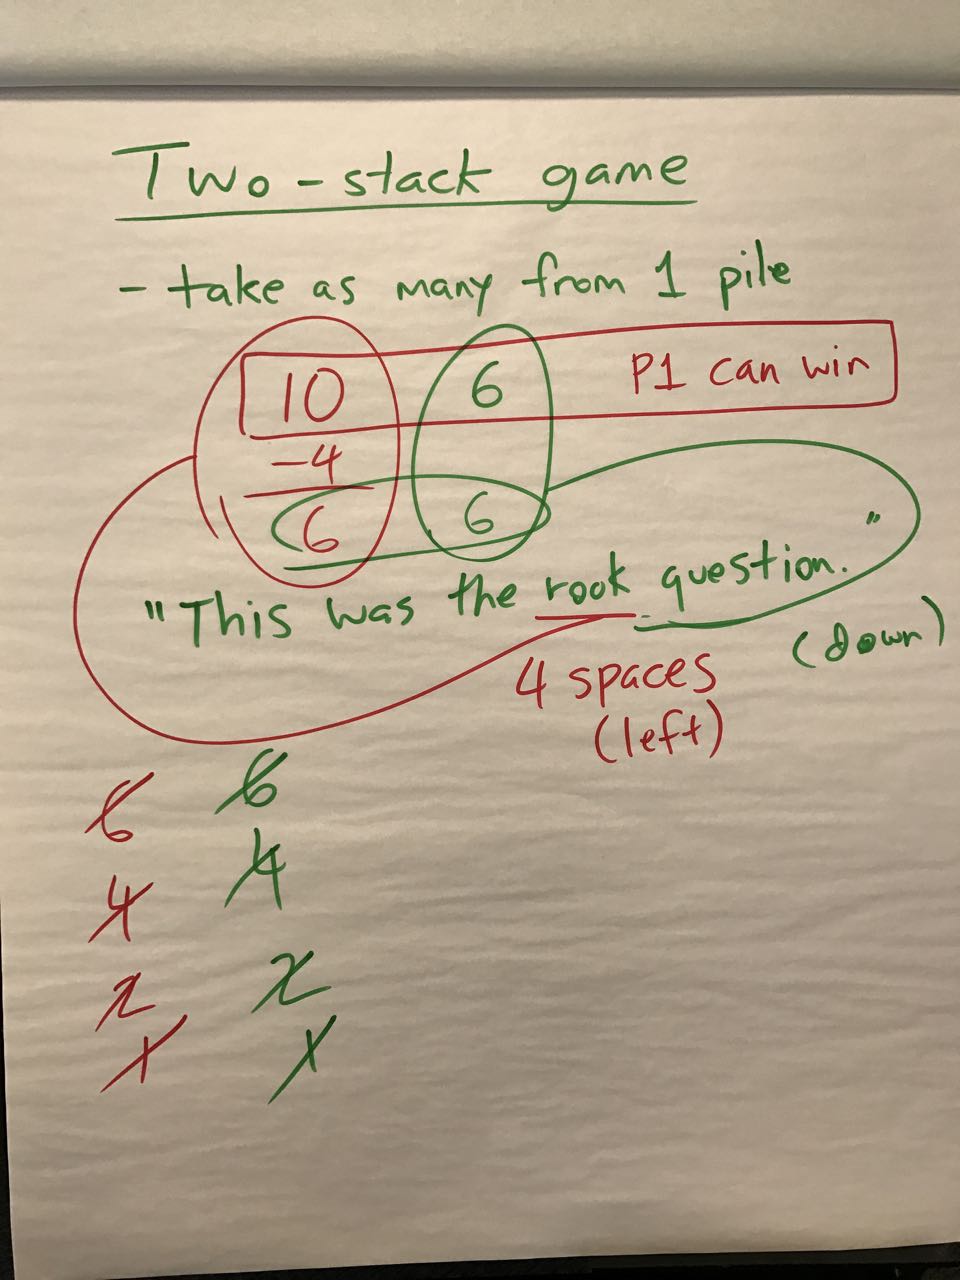 Two-stack game
- take as many from 1 pile
10 6 P1 can win
-4
6 6
"This was the rook question."
4 spaces (down)
(left)
6 6
4 4
2 2
1 1